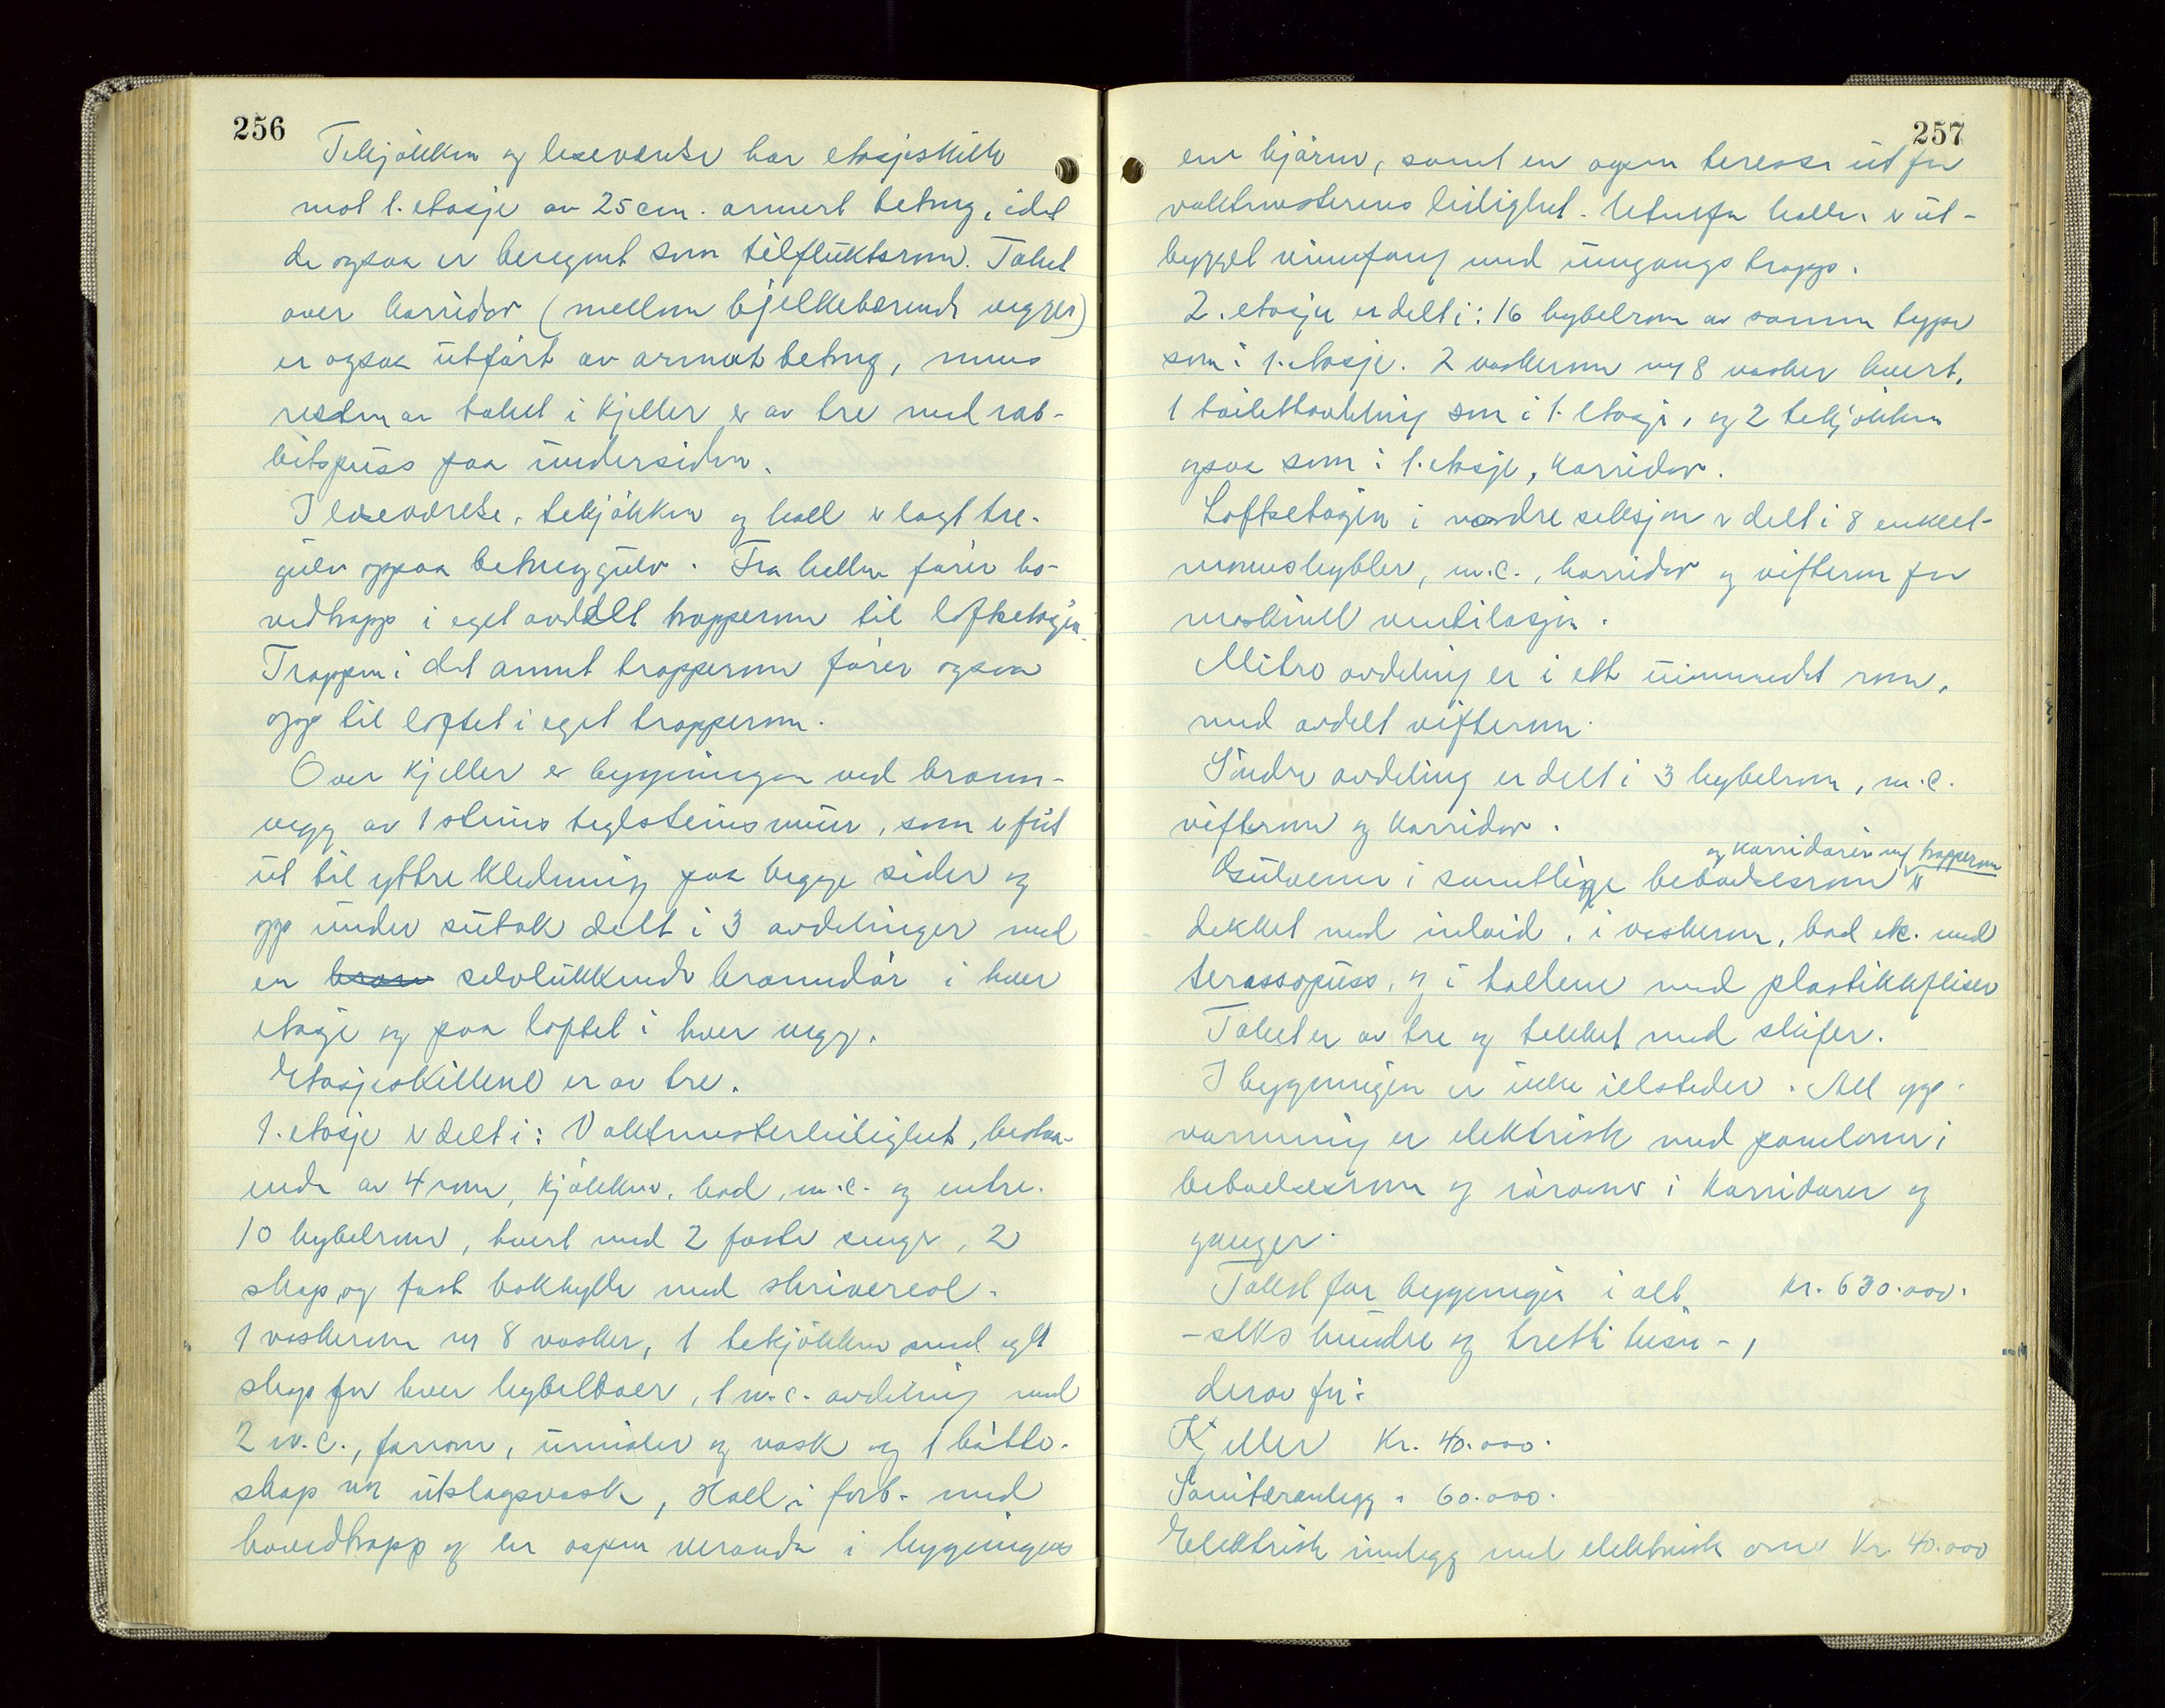 256
Tekjökken og leseværelse har etasjeskille
mot 1. etasje av 25 cm. armert betong, idet
de ogsaa er beregnet som tilflüktsrom. Taket
over korridor (mellom bjelkebærende vegger)
er ogsaa ütfört av armert betong, mens
resten av taket i kjeller er av tre med rab-
bitspüss paa ündersiden.
I leseværelse, tekjökken og hall er lagt tre-
gülv oppaa betonggülv. Fra hallen förer ho-
vedtrapp i eget avdelt trapperom til loftsetasjen.
Trappen i det annet trapperom förer ogsaa
opp til loftet i eget trapperom.
Over kjeller er bygningen ved brann-
vegg av 1 steins teglsteinsmür, som er fört
üt til yttre kledning paa begge sider og
opp ünder sütak delt i 3 avdelinger med
en selvlükkende branndör i hver
etasje og paa loftet i hver vegg.
Etasjeskillene er av tre.
1. etasje er delt i: Vaktmesterleilighet, bestaa-
ende av 4 rom, kjökken, bad, w.c. og entre.
10 hybelrom, hvert med 2 faste senger, 2
skap, og fast bokhylle med skrivereol.
1 vaskerom m/ 8 vasker, 1 tekjökken med eget
skap for hver hybelboer, 1 w.c. avdeling med
2 w.c., forrom, ürinaler og vask og 1 bötte-
skap m/ ütslagsvask, Hall i forb. med
hovedtrapp og en aapen veranda i bygningens
257
ene hjörne, samt en aapen terasse üt for
vaktmesterens leilighet. Utenfor hallen er üt-
bygget vinnfang med inngangs trapp.
2. etasje er delt i: 16 hybelrom av samme type
som i 1. etasje. 2 vaskerom m/ 8 vasker hvert,
1 toilettavdeling som i 1. etasje, og 2 tekjökken
ogsaa som i 1. etasje, korridor.
Loftsetasjen i nordre seksjon er delt i 8 enkelt-
mannshybler, w.c., korridor og vifterom for
maskinell ventilasjon.
Mitre avdeling er i ett üinnredet rom,
med avdelt vifterom.
Söndre avdeling er delt i 3 hybelrom, w.c.
vifterom og korridor.
og korridorer m/ trapperom
Gülvene i samtlige beboelsesrom er
dekket med inlaid, i vaskerom, bad etc. med
terassopüss, og i hallene med plastikkfliser
Taket er av tre og tekket med skifer.
I bygningen er ikke ildsteder. All opp-
varming er elektrisk med panelovner i
beboelsesrom og rörovner i korridorer og
ganger.
Takst for bygningen i alt kr. 630.000.
- seks hündre og tretti tüsen -,
derav for:
Kjeller Kr. 40.000.
Sanitæranlegg " 60.000.
Elektrisk innlegg med elektrisk ovner Kr. 40.000